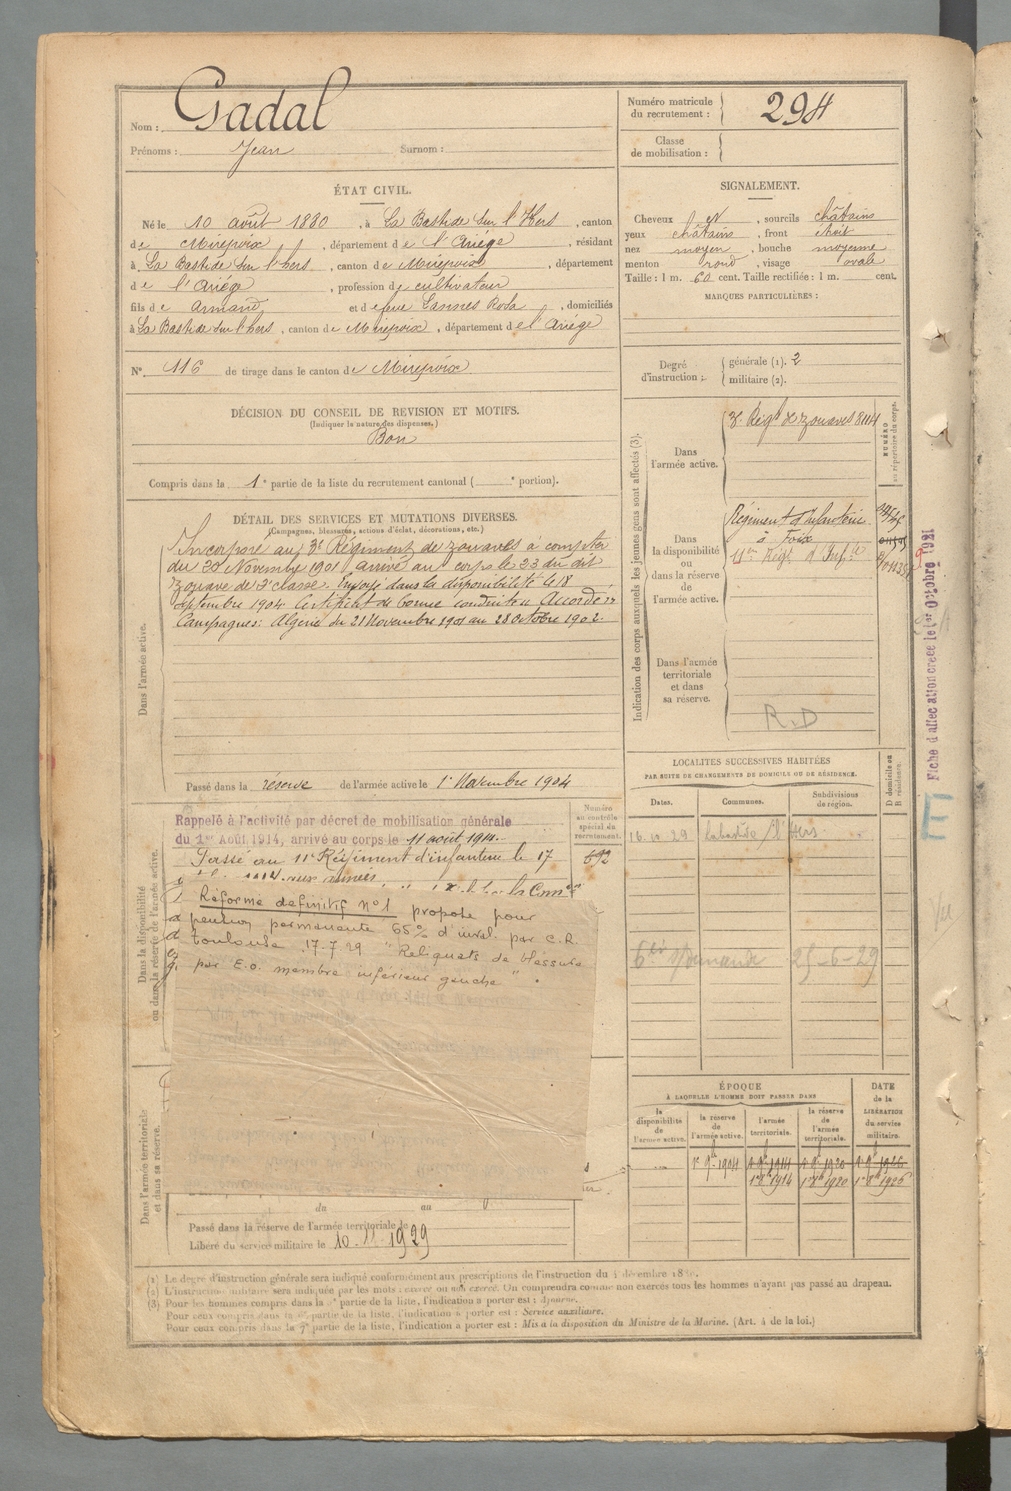 Nom : Gadal
Prénoms : Jean Surnom :
Numéro matricule
du recrutement : 294
Classe
de mobilisation :
ÉTAT CIVIL.
Né le 10 août 1880, à La Bastide sur l'Hers, canton
de Mirepoix, département de l'Ariége, résidant
à La Bastide sur l'hers, canton de Mirepoix, département
de l'Ariége, profession de cultivateur
fils de Armand et de feue Lannes Rosa, domiciliés
à La Bastide sur l'hers, canton de Mirepoix, département de l'Ariége
N° 116 de tirage dans le canton de Mirepoix
SIGNALEMENT.
Cheveux et, sourcils châtains
yeux châtains, front étroit
nez moyen, bouche moyenne
menton rond, visage ovale
Taille : 1 m. 60 cent. Taille rectifiée : 1 m. cent.
MARQUES PARTICULIÈRES :
Degré
d'instruction :
générale (1). 2
militaire (2).
DÉCISION DU CONSEIL DE REVISION ET MOTIFS.
(Indiquer la nature des dispenses.)
Bon
Compris dans la 1e partie de la liste du recrutement cantonal ( e portion).
DÉTAIL DES SERVICES ET MUTATIONS DIVERSES.
(Campagnes, blessures, actions d'éclat, décorations, etc.)
Dans l'armée active.
Incorporé au 3e Régiment de zouaves à compter
du 20 Novembre 1901 arrivé au corps le 23 du dit
zouave de 2e classe. Envoyé dans la disponibilité le 18
septembre 1904 Certificat de bonne conduite Accordé
Campagnes: Algérie du 21 Novembre 1901 au 28 Octobre 1902.
Passé dans la réserve de l'armée active le 1er Novembre 1904
Indication des corps auxquels les jeunes gens sont affectés (3).
NUMÉRO
au répertoire du corps.
Dans
l'armée active.
3e Régt de zouaves 8114
Dans
la disponibilité
ou
dans la réserve
de
l'armée active.
Régiment d'Infanterie
à Foix
11e Régt d'Infie
Dans l'armée
territoriale
et dans
sa réserve.
R.D
Fiche d'affectation créée le 1er Octobre 1921
Dans la disponibilité
ou dans la réserve de l'armée active.
Rappelé à l'activité par décret de mobilisation générale
du 1er Août 1914, arrivé au corps le 11 août 1914.
Passé au 11e Régiment d'infanterie le 17
Numéro
au contrôle
spécial du
recrutement.
692
Réforme définitif n°1 propose pour
pension permanente 65% d'inval. par C.R.
Toulouse 17.7.29 "Reliquats de blessure
par E.O. membre inférieur gauche".
LOCALITÉS SUCCESSIVES HABITÉES
PAR SUITE DE CHANGEMENTS DE DOMICILE OU DE RÉSIDENCE.
Dates. Communes. Subdivisions
de région.
D domicile ou
R résidence.
16.10.29 Labastide s/ l'Hers
25-6-29
Dans l'armée territoriale
et dans sa réserve.
ÉPOQUE
À LAQUELLE L'HOMME DOIT PASSER DANS
la
disponibilité
de
l'armée active.
la réserve
de
l'armée active.
l'armée
territoriale.
la réserve
de
l'armée
territoriale.
DATE
de la
LIBÉRATION
du service
militaire.
du au
Passé dans la réserve de l'armée territoriale le
Libéré du service militaire le 10.11.1929
(1) Le degré d'instruction générale sera indiqué conformément aux prescriptions de l'instruction du 4 décembre 18
(2) L'instruction militaire sera indiquée par les mots : exercé ou non exercé. On comprendra comme non exercés tous les hommes n'ayant pas passé au drapeau.
(3) Pour les hommes compris dans la partie de la liste, l'indication à porter est : Ajourné.
Pour ceux compris dans la partie de la liste, l'indication à porter est : Service auxiliaire.
Pour ceux compris dans la 7e partie de la liste, l'indication à porter est : Mis à la disposition du Ministre de la Marine. (Art. 4 de la loi.)